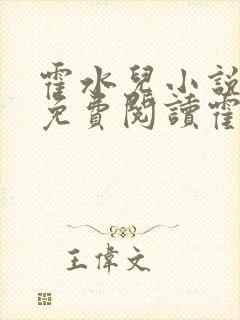 霍水兒小説
免費閱讀霍
王偉文